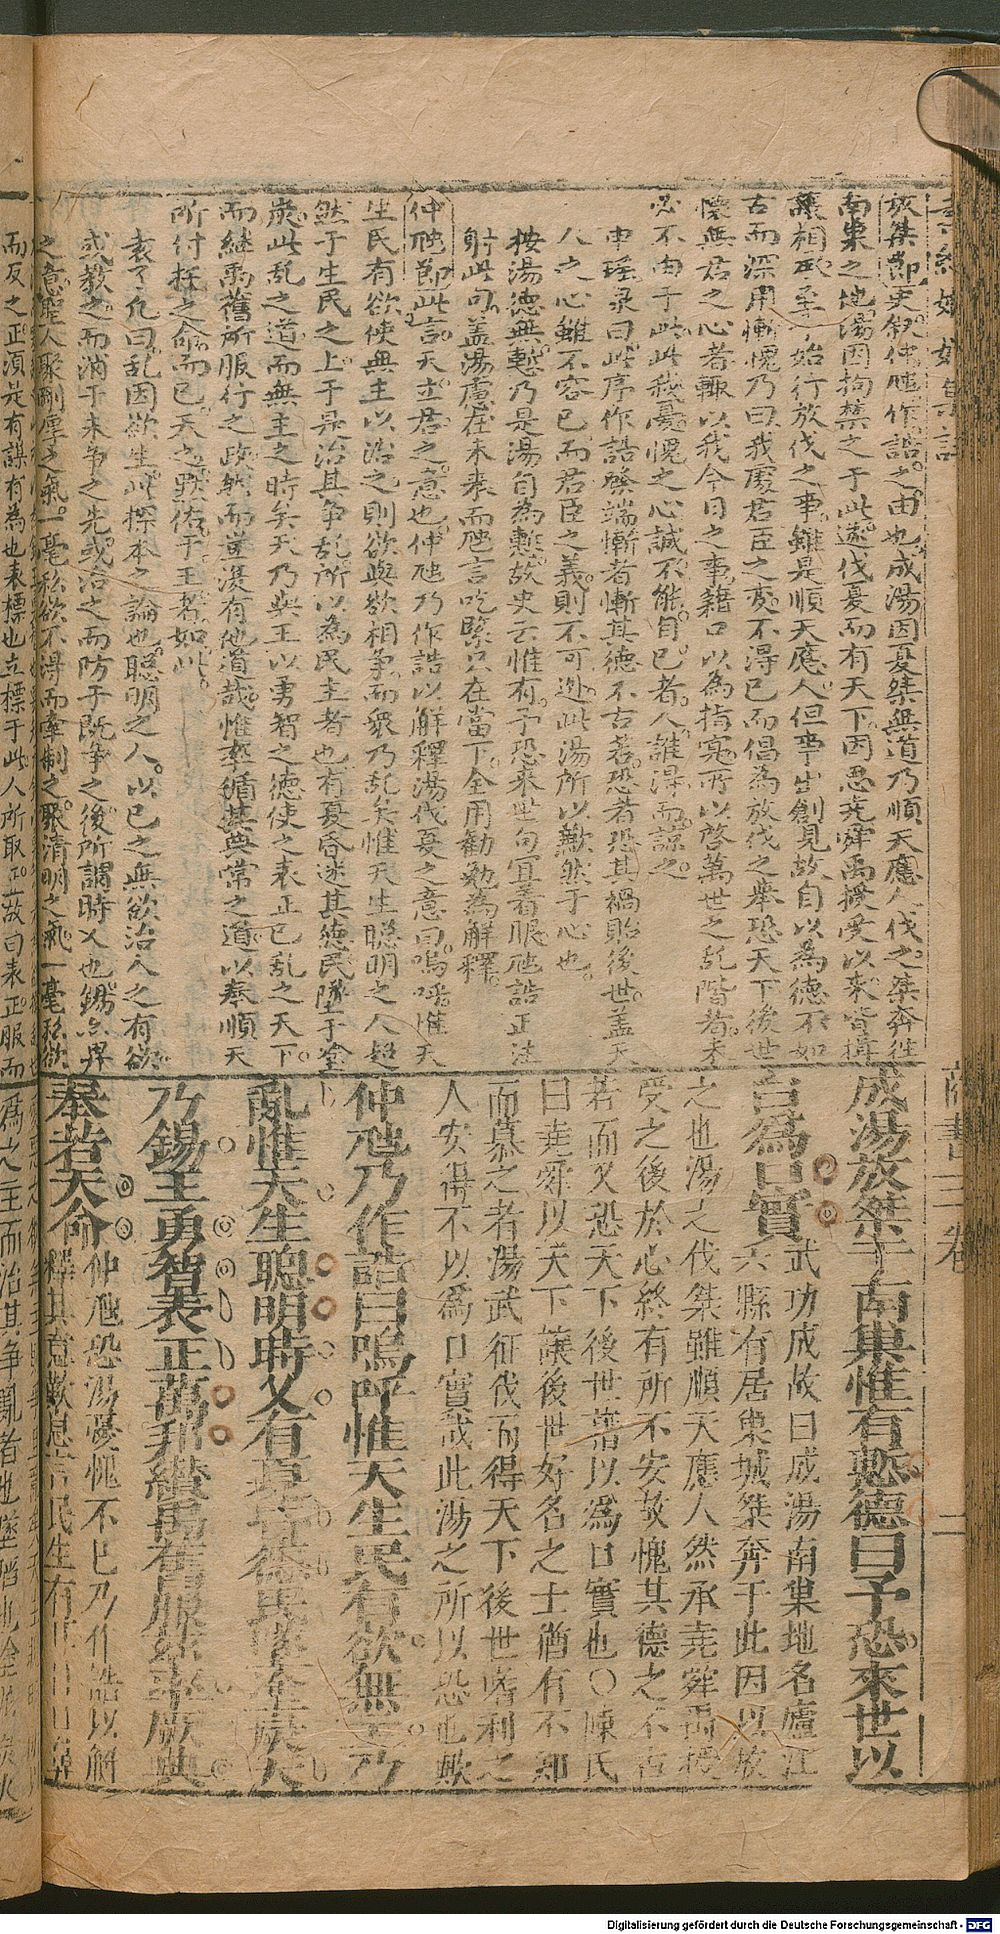 放桀節史敘仲虺作誥之由也成湯因夏桀無道乃順天應人伐之桀奔徃
南巢之地湯因拘禁之于此遂伐夏而有天下因思堯舜禹授受以来皆揖
讓相承至今始行放伐之事雖是順天應人但事出創見故自以為德不如
古而深用慚愧乃曰我處君臣之変不得已而倡為放伐之舉恐天下後世
懷無君之心者輒以我今日之事籍口以為指寔所以啓萬世之乱階者未
必不由于此此我憂愧之心誠不能自已者人誰得而諒之
申瑤泉曰此序作誥發端慚者慚其德不古若恐者恐其禍貽後世盖天
人之心雖不容已而君臣之義則不可逃此湯所以歉然于心也
按湯德無慙乃是湯自為慙故史云惟有予恐來世句冝着眼虺誥正注
射此句盖湯慮在未來而虺言吃緊只在當下全用勸勉為解釋
仲虺節此言天立君之意也仲虺乃作誥以解釋湯伐夏之意曰嗚呼惟天
生民有欲使無主以治之則欲與欲相爭而衆乃乱矣惟天生聡明之人超
然于生民之上于是治其争乱所以為民主者也有夏昏迷其德民墜于塗
炭此乱之道而無主之時矣天乃與王以勇智之德使之表正已乱之天下
而継禹舊所服行之政然而豈復有他道哉惟率循其典常之道以奉順天
所付托之命而已天之默佑于王者如此
袁了凡曰乱因欲生此探本之論也聡明之人以已之無欲治人之有欲
或教之而消于未争之先或治之而防于既争之後所謂時乂也錫
之意聖人聚剛厚之氣一毫私欲不得而牽制之聚清明之氣一毫私欲
商書三卷
二
成湯放桀于南巢惟有慙德曰予恐來世以
台為口實
武功成故曰成湯南巢地名廬江
六縣有居巢城桀奔于此因以放
之也湯之伐桀雖順天應人然承堯舜禹授
受之後於心終有所不安故愧其德之不古
若而又恐天下後世藉以為口實也〇陳氏
曰堯舜以天下讓後世好名之士猶有不知
而慕之者湯武征伐而得天下後世嗜利之
人安得不以為口實哉此湯之所以恐也歟
仲虺乃作誥曰嗚呼惟天生民有欲無主乃
亂惟天生聰明時乂有夏昏德民墜塗炭天
乃錫王勇智表正萬邦纘禹舊服茲率厥典
奉若天命
仲虺恐湯憂愧不已乃作誥以解
釋其意歎息言民生有
而反之正須是有謀有為也表標也立標于此人所取正故曰表正服而
為之主而治其争亂者也墜陷也塗泥炭火
Digitalisierung gefördert durch die Deutsche Forschungsgemeinschaft - DFG